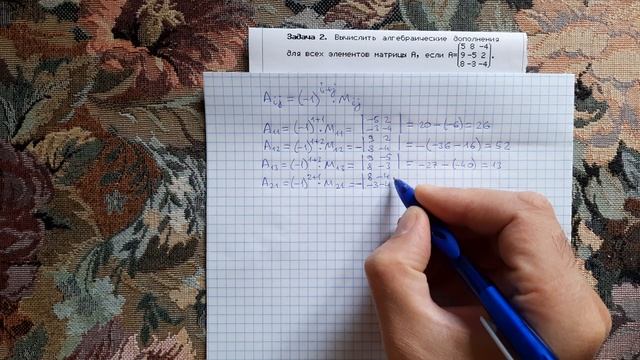 Задача 2. Вычислить алгебраические дополнения
для всех элементов матрицы A, если A=(5 8 -4
9 -5 2
8 -3 -4).
A_ij = (-1)^(i+j) · M_ij
A_11 = (-1)^(1+1) · M_11 = |-5 2
-3 -4| = 20 - (-6) = 26
A_12 = (-1)^(1+2) · M_12 = -|9 2
8 -4| = -(-36 - 16) = 52
A_13 = (-1)^(1+3) · M_13 = |9 -5
8 -3| = -27 - (-40) = 13
A_21 = (-1)^(2+1) · M_21 = -|8 -4
-3 -4